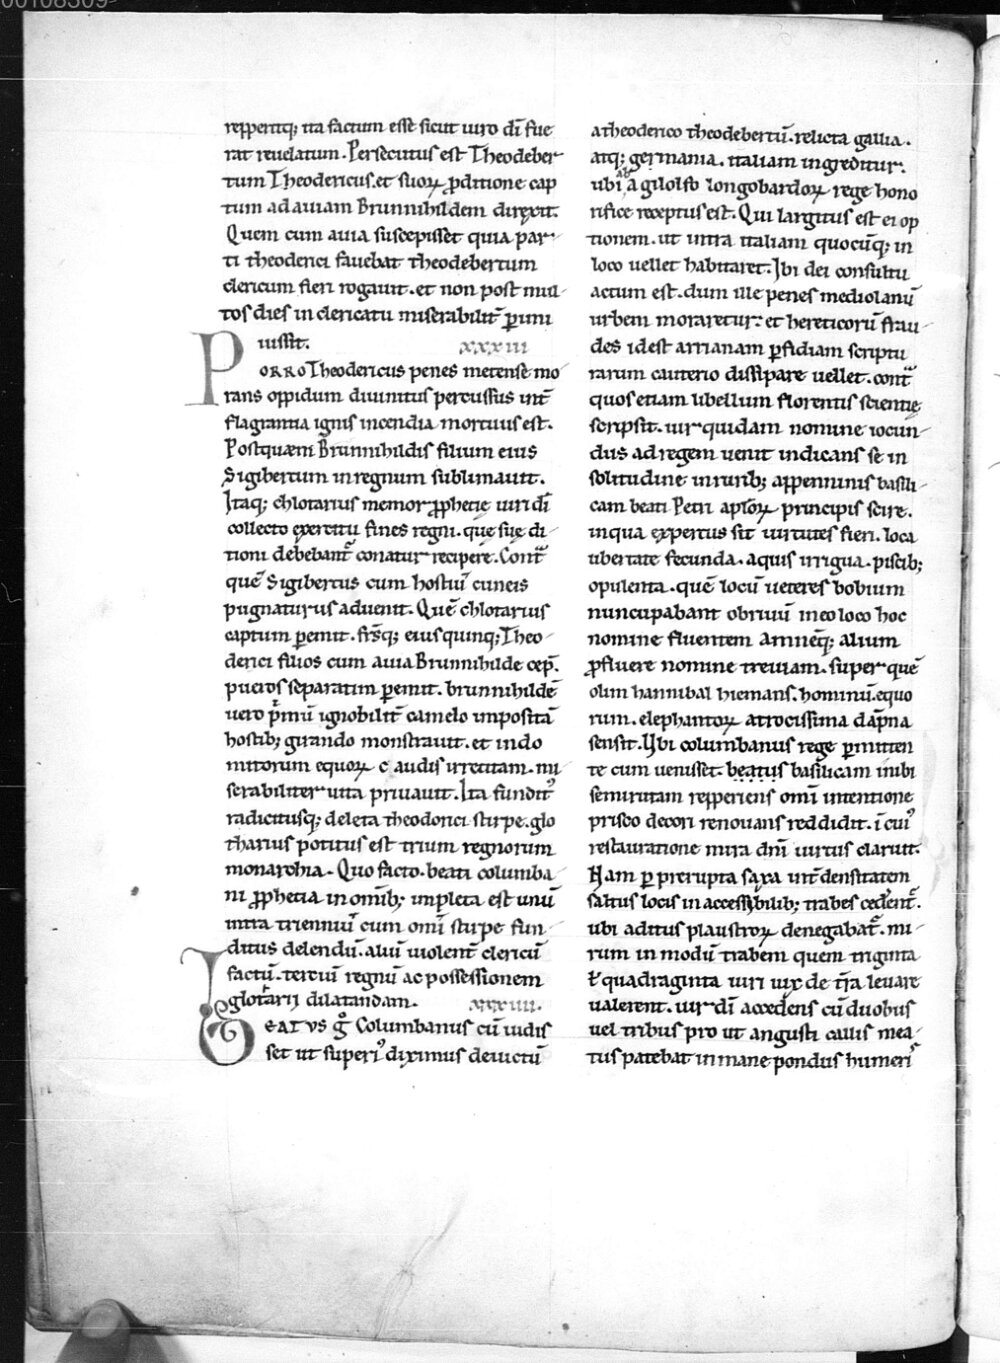 repperitq; ita factum esse sicut uiro di̅ fue
rat reuelatum. Persecutus est Theodeber
tum Theodericus. et suoꝝ ꝓditione cap
tum ad auiam Brunnihildem direxit.
Quem cum auia suscepisset quia par
ti theoderici fauebat theodebertum
clericum fieri rogauit. et non post mul
tos dies in clericatu miserabilit̅ ꝑimi
iussit. xxxiii
PORRO Theodericus penes metense mo
rans oppidum diuinitus percussus int̅
flagrantia ignis incendia mortuus est.
Postquæm Brunnihildis filium eius
Sigibertum in regnum sublimauit.
Itaq; chlotarius memor ꝓphetie uiri di̅
collecto exercitu fines regni. quę suę di
tioni debebant̅ conatur recipere. Cont̅
que̅ Sigibertus cum hostiu̅ cuneis
pugnaturus aduenit. Que̅ chlotarius
captum ꝑemit. fr̅sq; eius quinq; Theo
derici filios cum auia Brunnihilde cep̅.
pueros separatim ꝑemit. brunnihilde̅
uero p̅mu̅ ignobilit̅ camelo imposita̅
hostib; girando monstrauit. et indo
mitorum equoꝝ caudis irretitam. mi
serabiliter uita priuauit. Ita fundit᾽
radicitusq; deleta theodorici stirpe. glo
tharius potitus est trium regnorum
monarchia. Quo facto. beati columba
ni ꝓphetia in omib; impleta est unu̅
intra trienniu̅ cum omi̅ stirpe fun
ditus delendu̅. aliu̅ uiolent̅ clericu̅
factu̅. tertiu̅ regnu̅ ac possessionem
glotarii dilatandam. xxxiiii.
BEATVS g̊ Columbanus cu̅ uidis
set ut superi᾽ diximus deuictu̅
a theoderico theodebertu̅. relicta gallia.
atq; germania. italiam ingreditur.
ubi ab agilolfo longobardoꝝ rege hono
rifice receptus est. Qui largitus est ei op
tionem. ut intra italiam quocu̅q; in
loco uellet habitaret. Ibi dei consultu
actum est. dum ille penes mediolanu̅
urbem moraretur. et hereticoru̅ frau
des id est arrianam ꝑfidiam scriptu
rarum cauterio dissipare uellet. cont̅
quos etiam libellum florentis scientie
scripsit. uir quidam nomine iocun
dus ad regem uenit indicans se in
solitudine in rurib; appenninis basili
cam beati Petri apl̅oꝝ principis scire.
in qua expertus sit uirtutes fieri. loca
ubertate fecunda. aquis irrigua. piscib;
opulenta. que̅ locu̅ ueteres bobium
nuncupabant ob riuu̅ in eo loco hoc
nomine fluentem amne̅q; alium
ꝓfluere nomine treuiam. super que̅
olim hannibal hiemans. hominu̅. equo
rum. elephantoꝝ atrocissima dap̅na
sensit. Ubi columbanus rege ꝑmitten
te cum uenisset. beatus basilicam inibi
semirutam repperiens omi̅ intentione
prisco decori renouans reddidit. i̅ cui᾽
restauratione mira dn̅i uirtus claruit.
Nam ꝑ prerupta saxa int̅ densitatem
saltus locis in accessibilib; trabes cedent̅.
ubi aditus plaustroꝝ denegabat̅. mi
rum in modu̅ trabem quem triginta
ł quadraginta uiri uix de t̅ra leuare
ualerent. uir di̅ accedens cu̅ duobus
uel tribus pro ut angusti callis mea
tus patebat inmane pondus humeris